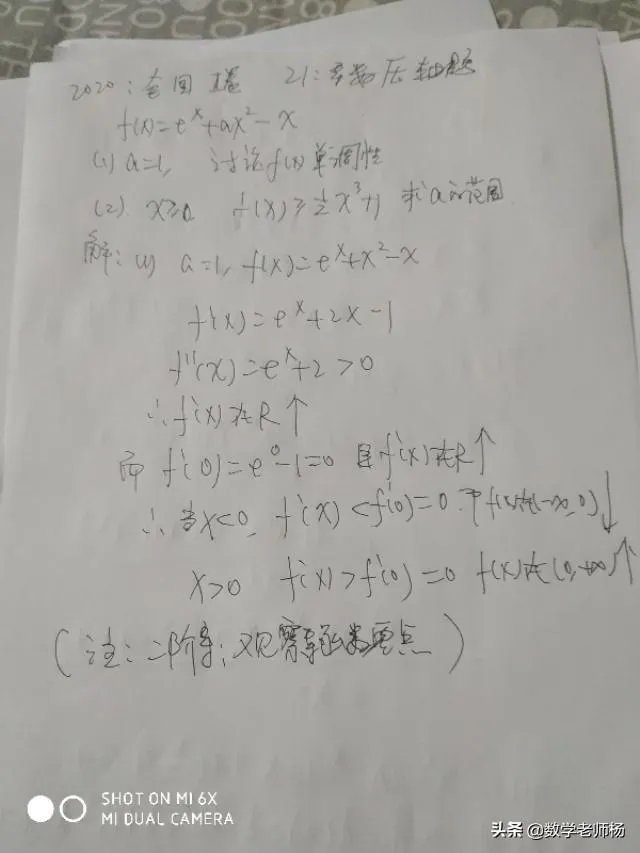 2020:全国I卷 21:导数压轴题
f(x)=e^x+ax²-x
(1) a=1, 讨论f(x)单调性
(2). x≥0 f(x)≥½x³+1 求a的范围
解:(1) a=1, f(x)=e^x+x²-x
f'(x)=e^x+2x-1
f''(x)=e^x+2>0
∴f'(x)在R↑
而 f'(0)=e⁰-1=0 且f'(x)在R↑
∴当x<0, f'(x)<f'(0)=0 f(x)在(-∞,0)↓
x>0 f'(x)>f'(0)=0 f(x)在(0,+∞)↑
(注:二阶导;观察导函数零点)
SHOT ON MI 6X
MI DUAL CAMERA
头条 @数学老师杨